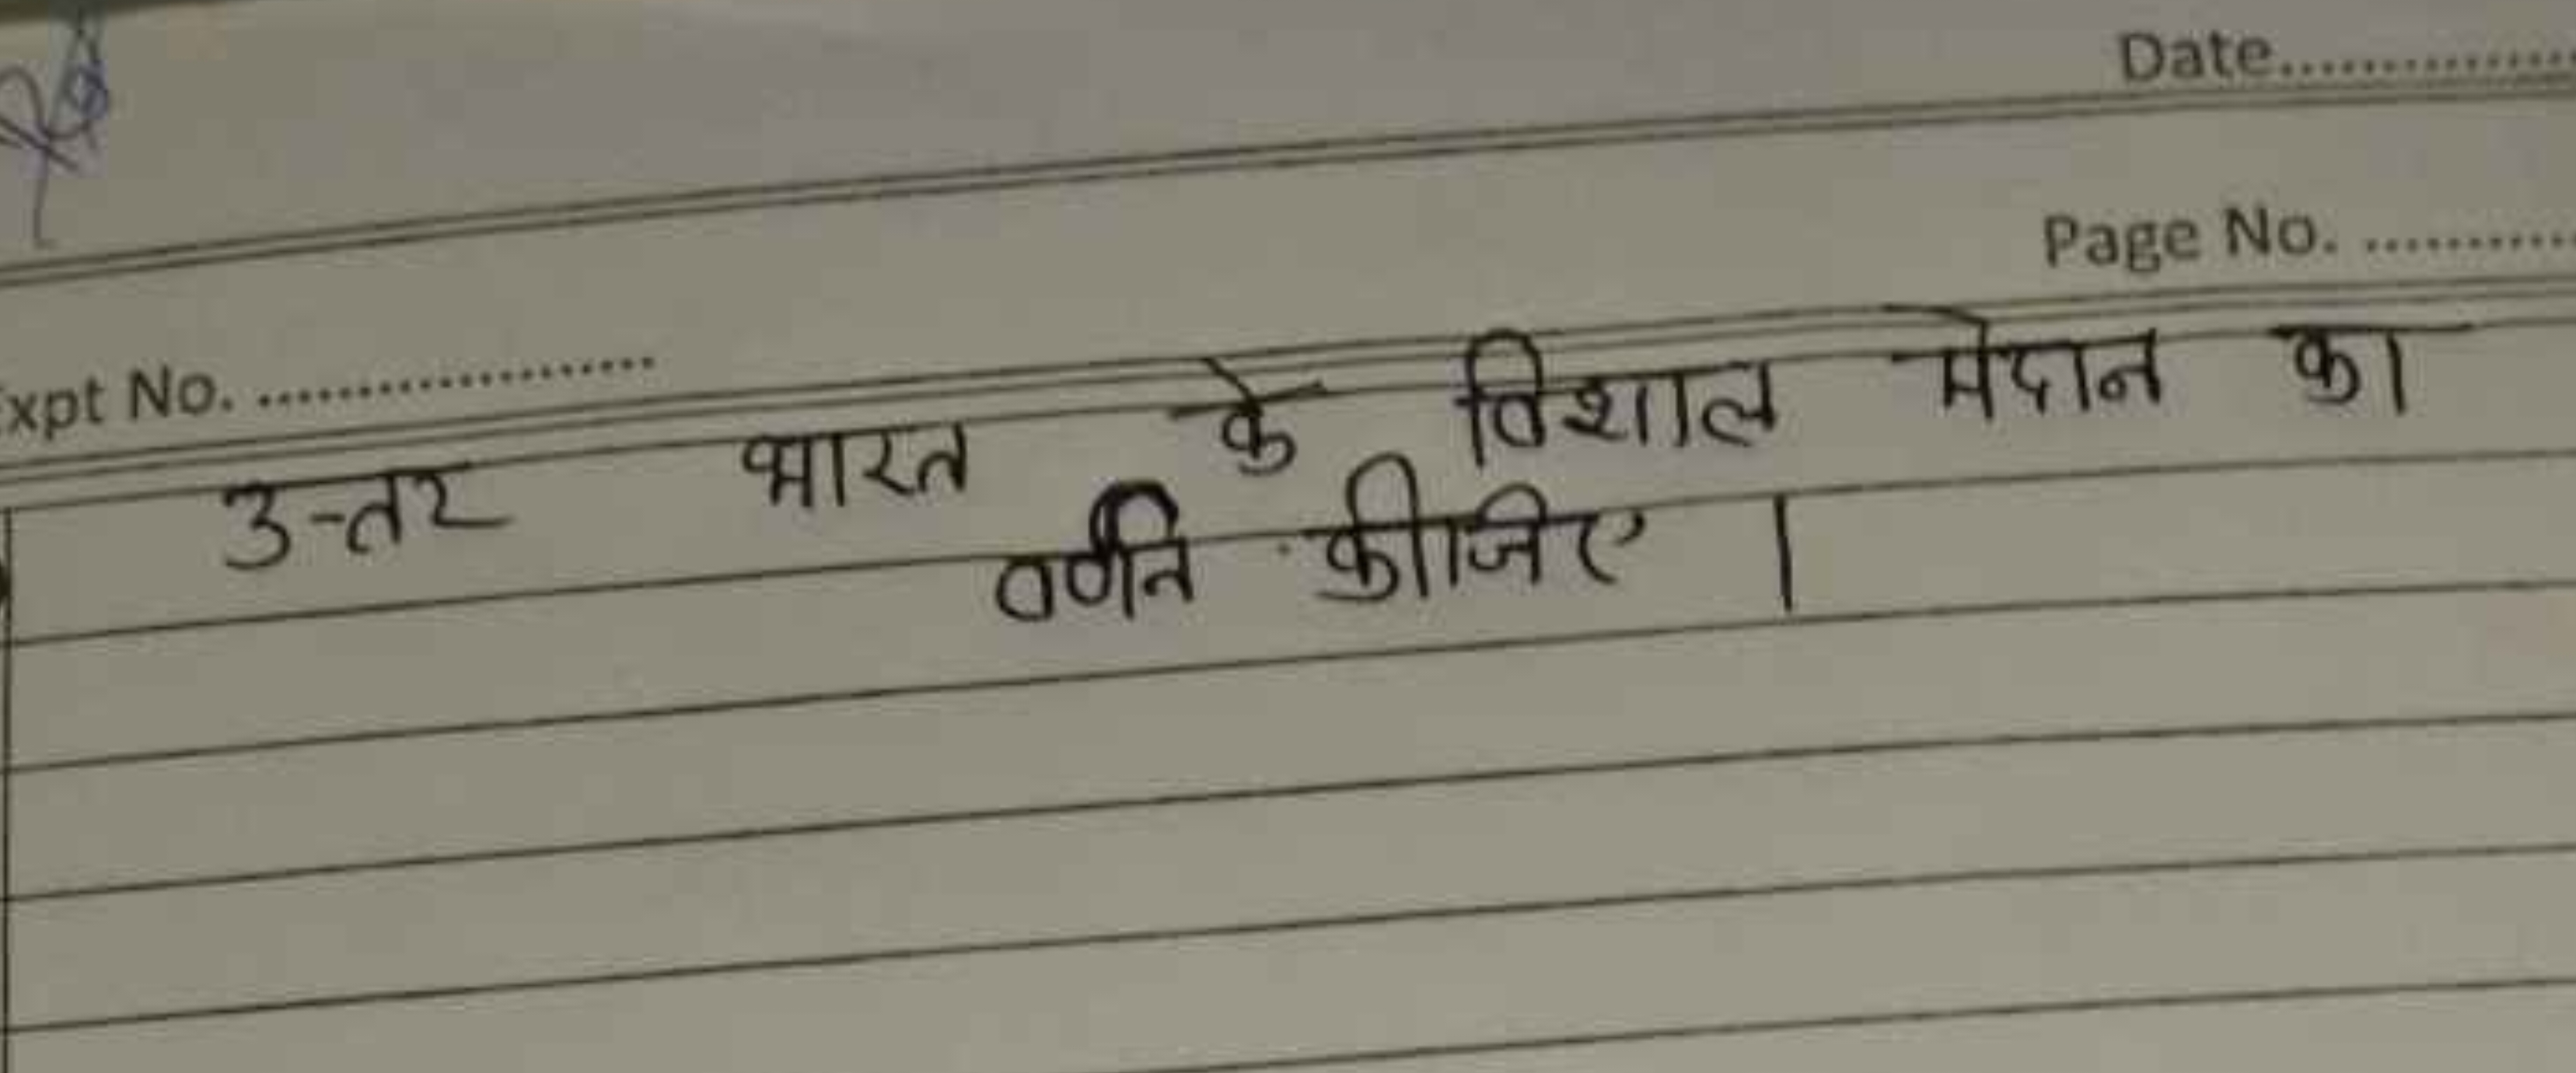 Date..............
Page No. ...........
xpt No. ....................
उत्तर भारत के विशाल मेदान का
वर्णन कीजिए ।